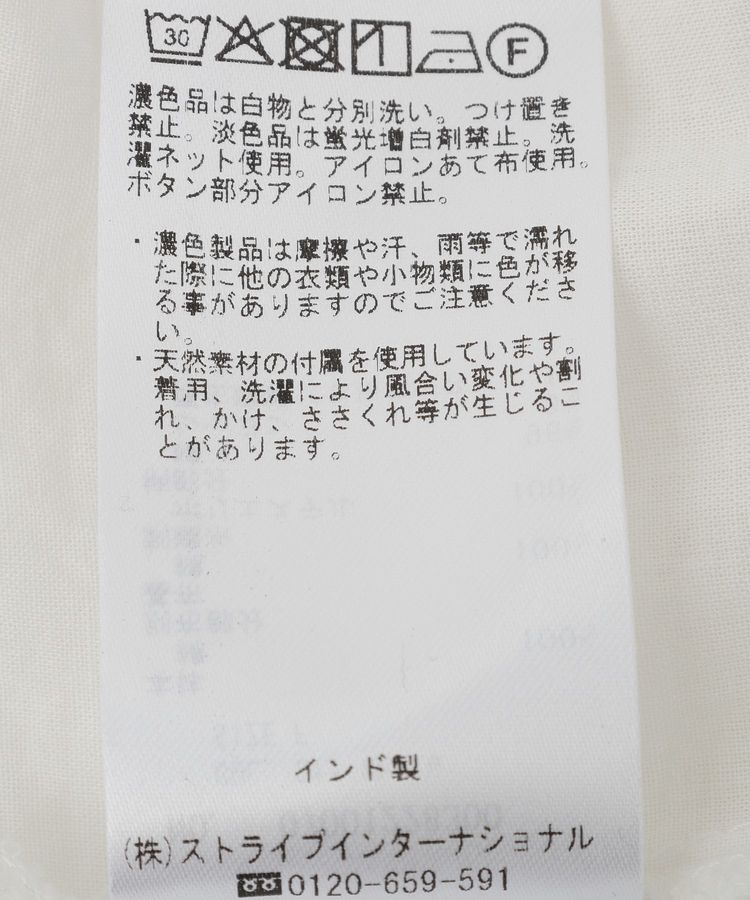 30
F
濃色品は白物と分別洗い。つけ置き
禁止。淡色品は蛍光増白剤禁止。洗
濯ネット使用。アイロンあて布使用。
ボタン部分アイロン禁止。
・濃色製品は摩擦や汗、雨等で濡れ
た際に他の衣類や小物類に色が移
る事がありますのでご注意くださ
い。
・天然素材の付属を使用しています。
着用、洗濯により風合い変化や割
れ、かけ、ささくれ等が生じるこ
とがあります。
インド製
(株)ストライプインターナショナル
0120-659-591